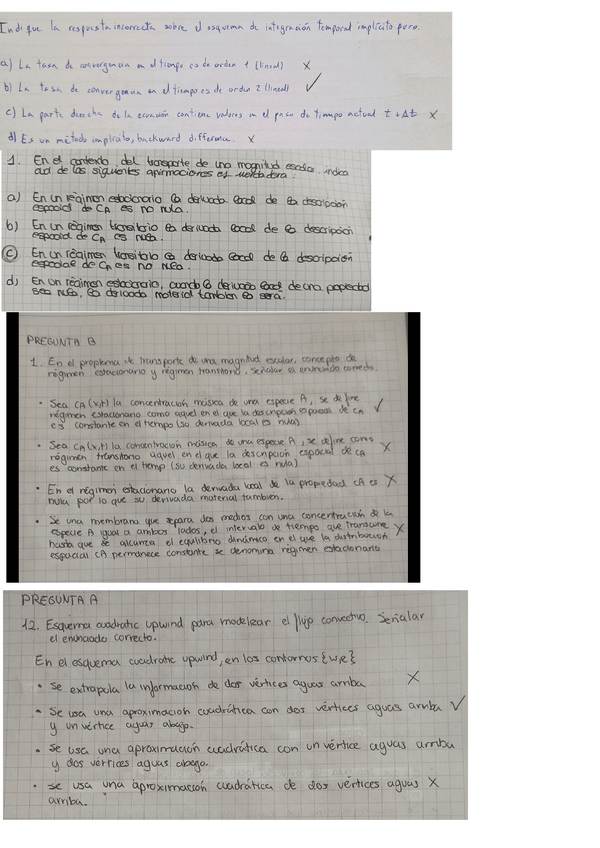 Indique la respuesta incorrecta sobre el esquema de integración temporal implícito puro.
a) La tasa de convergencia en el tiempo es de orden 1 (lineal) X
b) La tasa de convergencia en el tiempo es de orden 2 (lineal) ✓
c) La parte derecha de la ecuación contiene valores en el paso de tiempo actual t + Δt X
d) Es un método implícito, backward difference. X
1. En el contexto del transporte de una magnitud escalar, indica
cual de las siguientes afirmaciones es verdadera:
a) En un régimen estacionario la derivada local de la descripción
espacial de CA es no nula.
b) En un régimen transitorio la derivada local de la descripción
espacial de CA es nula.
c) En un régimen transitorio la derivada local de la descripción
espacial de CA es no nula.
d) En un régimen estacionario, cuando la derivada local de una propiedad
sea nula, la derivada material también lo será.
PREGUNTA B
1. En el problema de transporte de una magnitud escalar, concepto de
régimen estacionario y régimen transitorio. Señalar el enunciado correcto.
• Sea CA (x,t) la concentración másica de una especie A, se define
régimen estacionario como aquel en el que la descripción espacial de CA ✓
es constante en el tiempo (su derivada local es nula)
• Sea CA (x,t) la concentración másica de una especie A, se define como
régimen transitorio aquel en el que la descripción espacial de CA X
es constante en el tiemp (su derivada local es nula)
• En el régimen estacionario la derivada local de la propiedad CA es X
nula por lo que su derivada material también.
• Se una membrana que separa dos medios con una concentración de la
especie A igual a ambos lados, el intervalo de tiempo que transcurre X
hasta que se alcanza el equilibrio dinámico, en el que la distribución
espacial CA permanece constante se denomina régimen estacionario
PREGUNTA A
12. Esquema cuadratic upwind para modelizar el flujo convectivo. Señalar
el enunciado correcto.
En el esquema cuadratic upwind, en los contornos {WR}
• Se extrapola la información de dos vértices aguas arriba X
• Se usa una aproximación cuadrática con dos vértices aguas arriba ✓
y un vértice aguas abajo.
• Se usa una aproximación cuadrática con un vértice aguas arriba
y dos vértices aguas abajo.
• se usa una aproximación cuadrática de dos vértices aguas X
arriba.